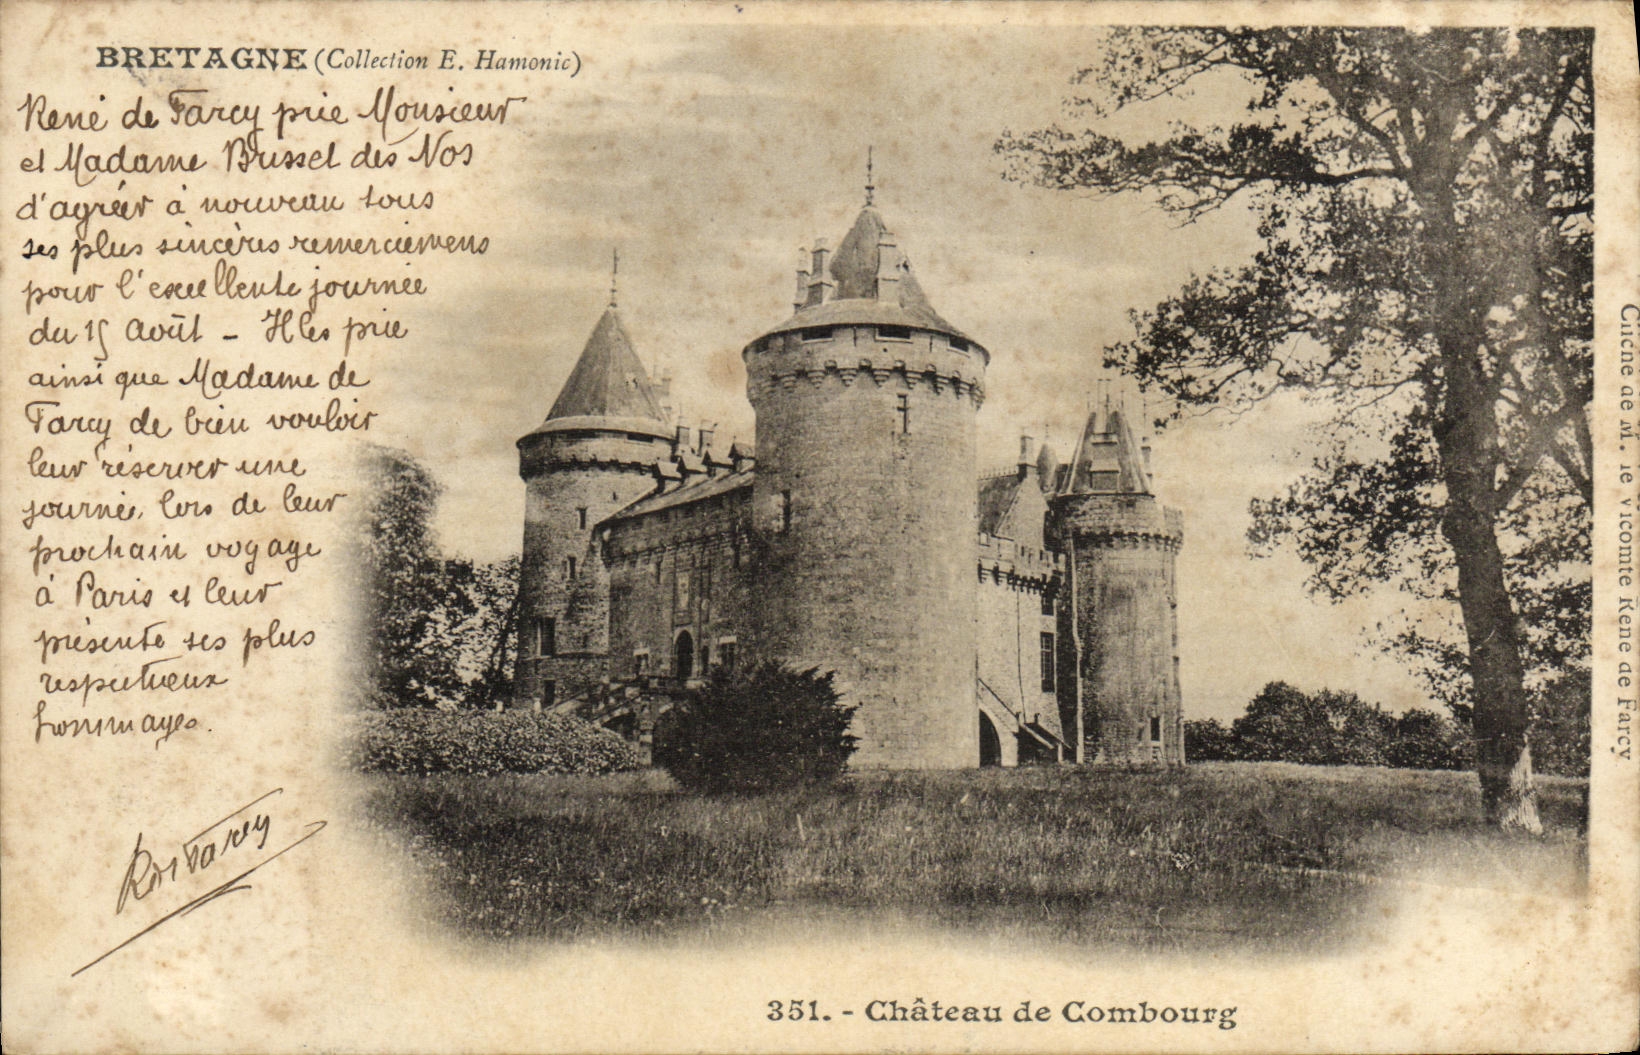 BRETAGNE (Collection E. Hamonic)
René de Farcy prie Monsieur
et Madame Brissel des Nos
d'agréer à nouveau tous
ses plus sincères remerciemens
pour l'excellente journée
du 15 Août - Il les prie
ainsi que Madame de
Farcy de bien vouloir
leur réserver une
journée, lors de leur
prochain voyage
à Paris et leur
présente ses plus
respectueux
hommages.
R de Farcy
Cliché de M. le Vicomte René de Farcy
351. - Château de Combourg